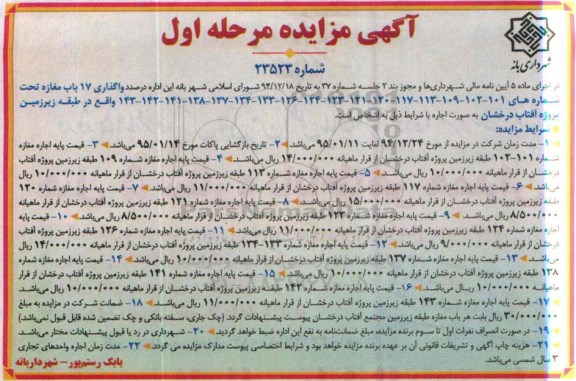 آگهی مزایده مرحله اول
شماره ۲۳۵۲۳
شهرداری بانه
در اجرای ماده ۵ آیین نامه مالی شهرداری‌ها و مجوز بند ۲ جلسه شماره ۳۷ به تاریخ ۹۴/۱۲/۱۸ شورای اسلامی شهر بانه این اداره درصدد واگذاری ۱۷ باب مغازه تحت
شماره های ۱۰۱-۱۰۲-۱۰۹-۱۱۳-۱۱۷-۱۲۰-۱۲۱-۱۲۳-۱۲۴-۱۲۶-۱۳۳-۱۳۴-۱۳۷-۱۳۸-۱۴۱-۱۴۲-۱۴۳ واقع در طبقه زیرزمین
پروژه آفتاب درخشان به صورت اجاره با شرایط ذیل به اشخاص است.
شرایط مزایده:
۱- مدت زمان شرکت در مزایده از مورخ ۹۴/۱۲/۲۴ لغایت ۹۵/۰۱/۱۱ می‌باشد. ۲- تاریخ بازگشایی پاکات مورخ ۹۵/۰۱/۱۴ می‌باشد. ۳- قیمت پایه اجاره مغازه
شماره ۱۰۱-۱۰۲ طبقه زیرزمین پروژه آفتاب درخشان از قرار ماهیانه ۱۴/۰۰۰/۰۰۰ ریال می‌باشد. ۴- قیمت پایه اجاره مغازه شماره ۱۰۹ طبقه زیرزمین پروژه آفتاب
درخشان از قرار ماهیانه ۱۰/۰۰۰/۰۰۰ ریال می‌باشد. ۵- قیمت پایه اجاره مغازه شماره ۱۱۳ طبقه زیرزمین پروژه آفتاب درخشان از قرار ماهیانه ۱۰/۰۰۰/۰۰۰ ریال
می‌باشد. ۶- قیمت پایه اجاره مغازه شماره ۱۱۷ طبقه زیرزمین پروژه آفتاب درخشان از قرار ماهیانه ۱۱/۰۰۰/۰۰۰ ریال می‌باشد. ۷- قیمت پایه اجاره مغازه شماره ۱۲۰
طبقه زیرزمین پروژه آفتاب درخشان از قرار ماهیانه ۱۵/۰۰۰/۰۰۰ ریال می‌باشد. ۸- قیمت پایه اجاره مغازه شماره ۱۲۱ طبقه زیرزمین پروژه آفتاب درخشان از قرار ماهیانه
۸/۵۰۰/۰۰۰ ریال می‌باشد. ۹- قیمت پایه اجاره مغازه شماره ۱۲۳ طبقه زیرزمین پروژه آفتاب درخشان از قرار ماهیانه ۸/۵۰۰/۰۰۰ ریال می‌باشد. ۱۰- قیمت پایه
اجاره مغازه شماره ۱۲۴ طبقه زیرزمین پروژه آفتاب درخشان از قرار ماهیانه ۱۱/۰۰۰/۰۰۰ ریال می‌باشد. ۱۱- قیمت پایه اجاره مغازه شماره ۱۲۶ طبقه زیرزمین پروژه آفتاب
درخشان از قرار ماهیانه ۹/۰۰۰/۰۰۰ ریال می‌باشد. ۱۲- قیمت پایه اجاره مغازه شماره ۱۳۳-۱۳۴ طبقه زیرزمین پروژه آفتاب درخشان از قرار ماهیانه ۱۴/۰۰۰/۰۰۰ ریال
می‌باشد. ۱۳- قیمت پایه اجاره مغازه شماره ۱۳۷ طبقه زیرزمین پروژه آفتاب درخشان از قرار ماهیانه ۱۰/۰۰۰/۰۰۰ ریال می‌باشد. ۱۴- قیمت پایه اجاره مغازه شماره
۱۳۸ طبقه زیرزمین پروژه آفتاب درخشان از قرار ماهیانه ۱۰/۰۰۰/۰۰۰ ریال می‌باشد. ۱۵- قیمت پایه اجاره مغازه شماره ۱۴۱ طبقه زیرزمین پروژه آفتاب درخشان از قرار
ماهیانه ۱۰/۰۰۰/۰۰۰ ریال می‌باشد. ۱۶- قیمت پایه اجاره مغازه شماره ۱۴۲ طبقه زیرزمین پروژه آفتاب درخشان از قرار ماهیانه ۱۱/۰۰۰/۰۰۰ ریال می‌باشد.
۱۷- قیمت پایه اجاره مغازه شماره ۱۴۳ طبقه زیرزمین پروژه آفتاب درخشان از قرار ماهیانه ۱۱/۰۰۰/۰۰۰ ریال می‌باشد. ۱۸- ضمانت شرکت در مزایده به مبلغ
۳۰/۰۰۰/۰۰۰ ریال بابت هر باب مغازه طبقه زیرزمین مجتمع آفتاب درخشان پیوست پیشنهادات گردد. (چک جاری، سفته بانکی و چک تضمین شده قابل قبول نمی‌باشد)
۱۹- در صورت انصراف نفرات اول تا سوم برنده مزایده، مبلغ ضمانت‌نامه به نفع این اداره ضبط خواهد گردید. ۲۰- شهرداری در رد یا قبول پیشنهادات مختار می‌باشد.
۲۱- هزینه چاپ آگهی و تشریفات قانونی آن بر عهده برنده مزایده خواهد بود و شرایط اختصاصی پیوست مدارک مزایده می گردد. ۲۲- مدت زمان اجاره واحدهای تجاری
۳ سال شمسی می‌باشد.
بابک رستم‌پور – شهردار بانه